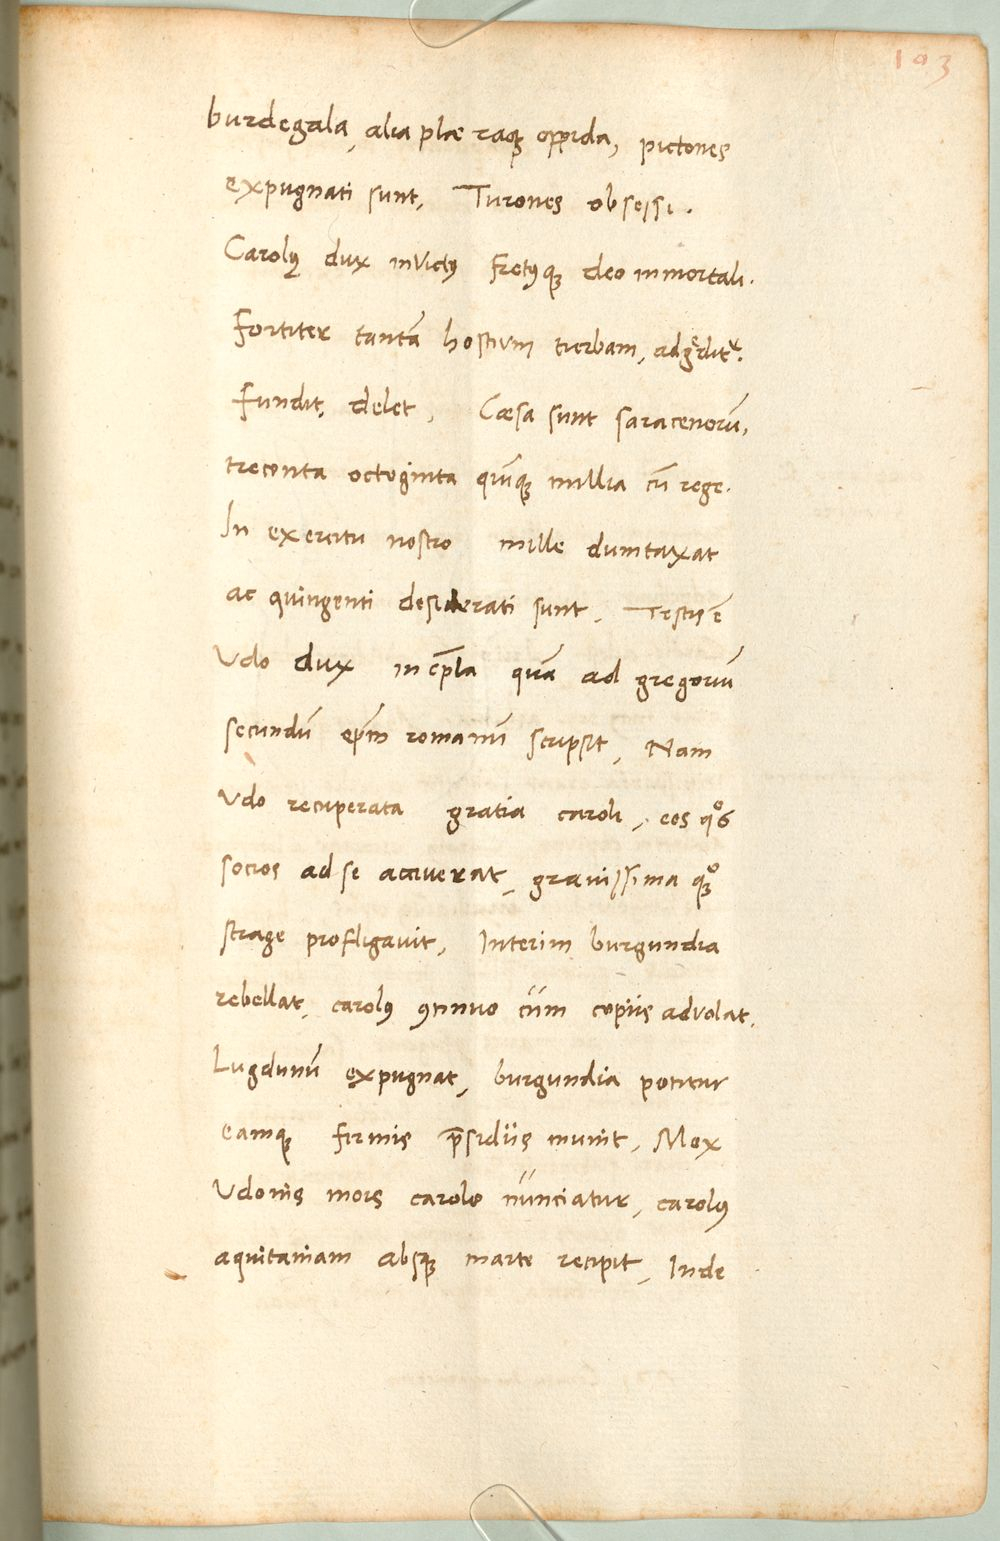 103
burdegala, alia plæ raqꝫ oppida, pictones
expugnati sunt, Turones obsessi.
Carolꝰ dux invictꝰ fretꝰqꝫ deo inmortali.
Fortiter tantā hostium turbam, adgrędit᷑.
Fundit, delet, Cæsa sunt saracenorū,
treconta octoginta quīqꝫ millia cū rege.
In exercitu nostro mille dumtaxat
ac quingenti desiderati sunt, Testis ē
Udo dux in epl̄a quā ad gregoriū
secundū ep̄m romanū scripsit, Nam
Udo recuperata gratia caroli, eos qͦs
socios ad se acciverat, gravissima qꝫͦ
strage profligavit, Interim burgundia
rebellat, carolꝰ ꝯtinuo cum copiis advolat.
Lugdunū expugnat, burgundia potitur
eamqꝫ firmis p̄sidiis munit, Mox
Udonis mors carolo nunciatur, carolꝰ
aquitaniam absqꝫ marte recipit, Inde